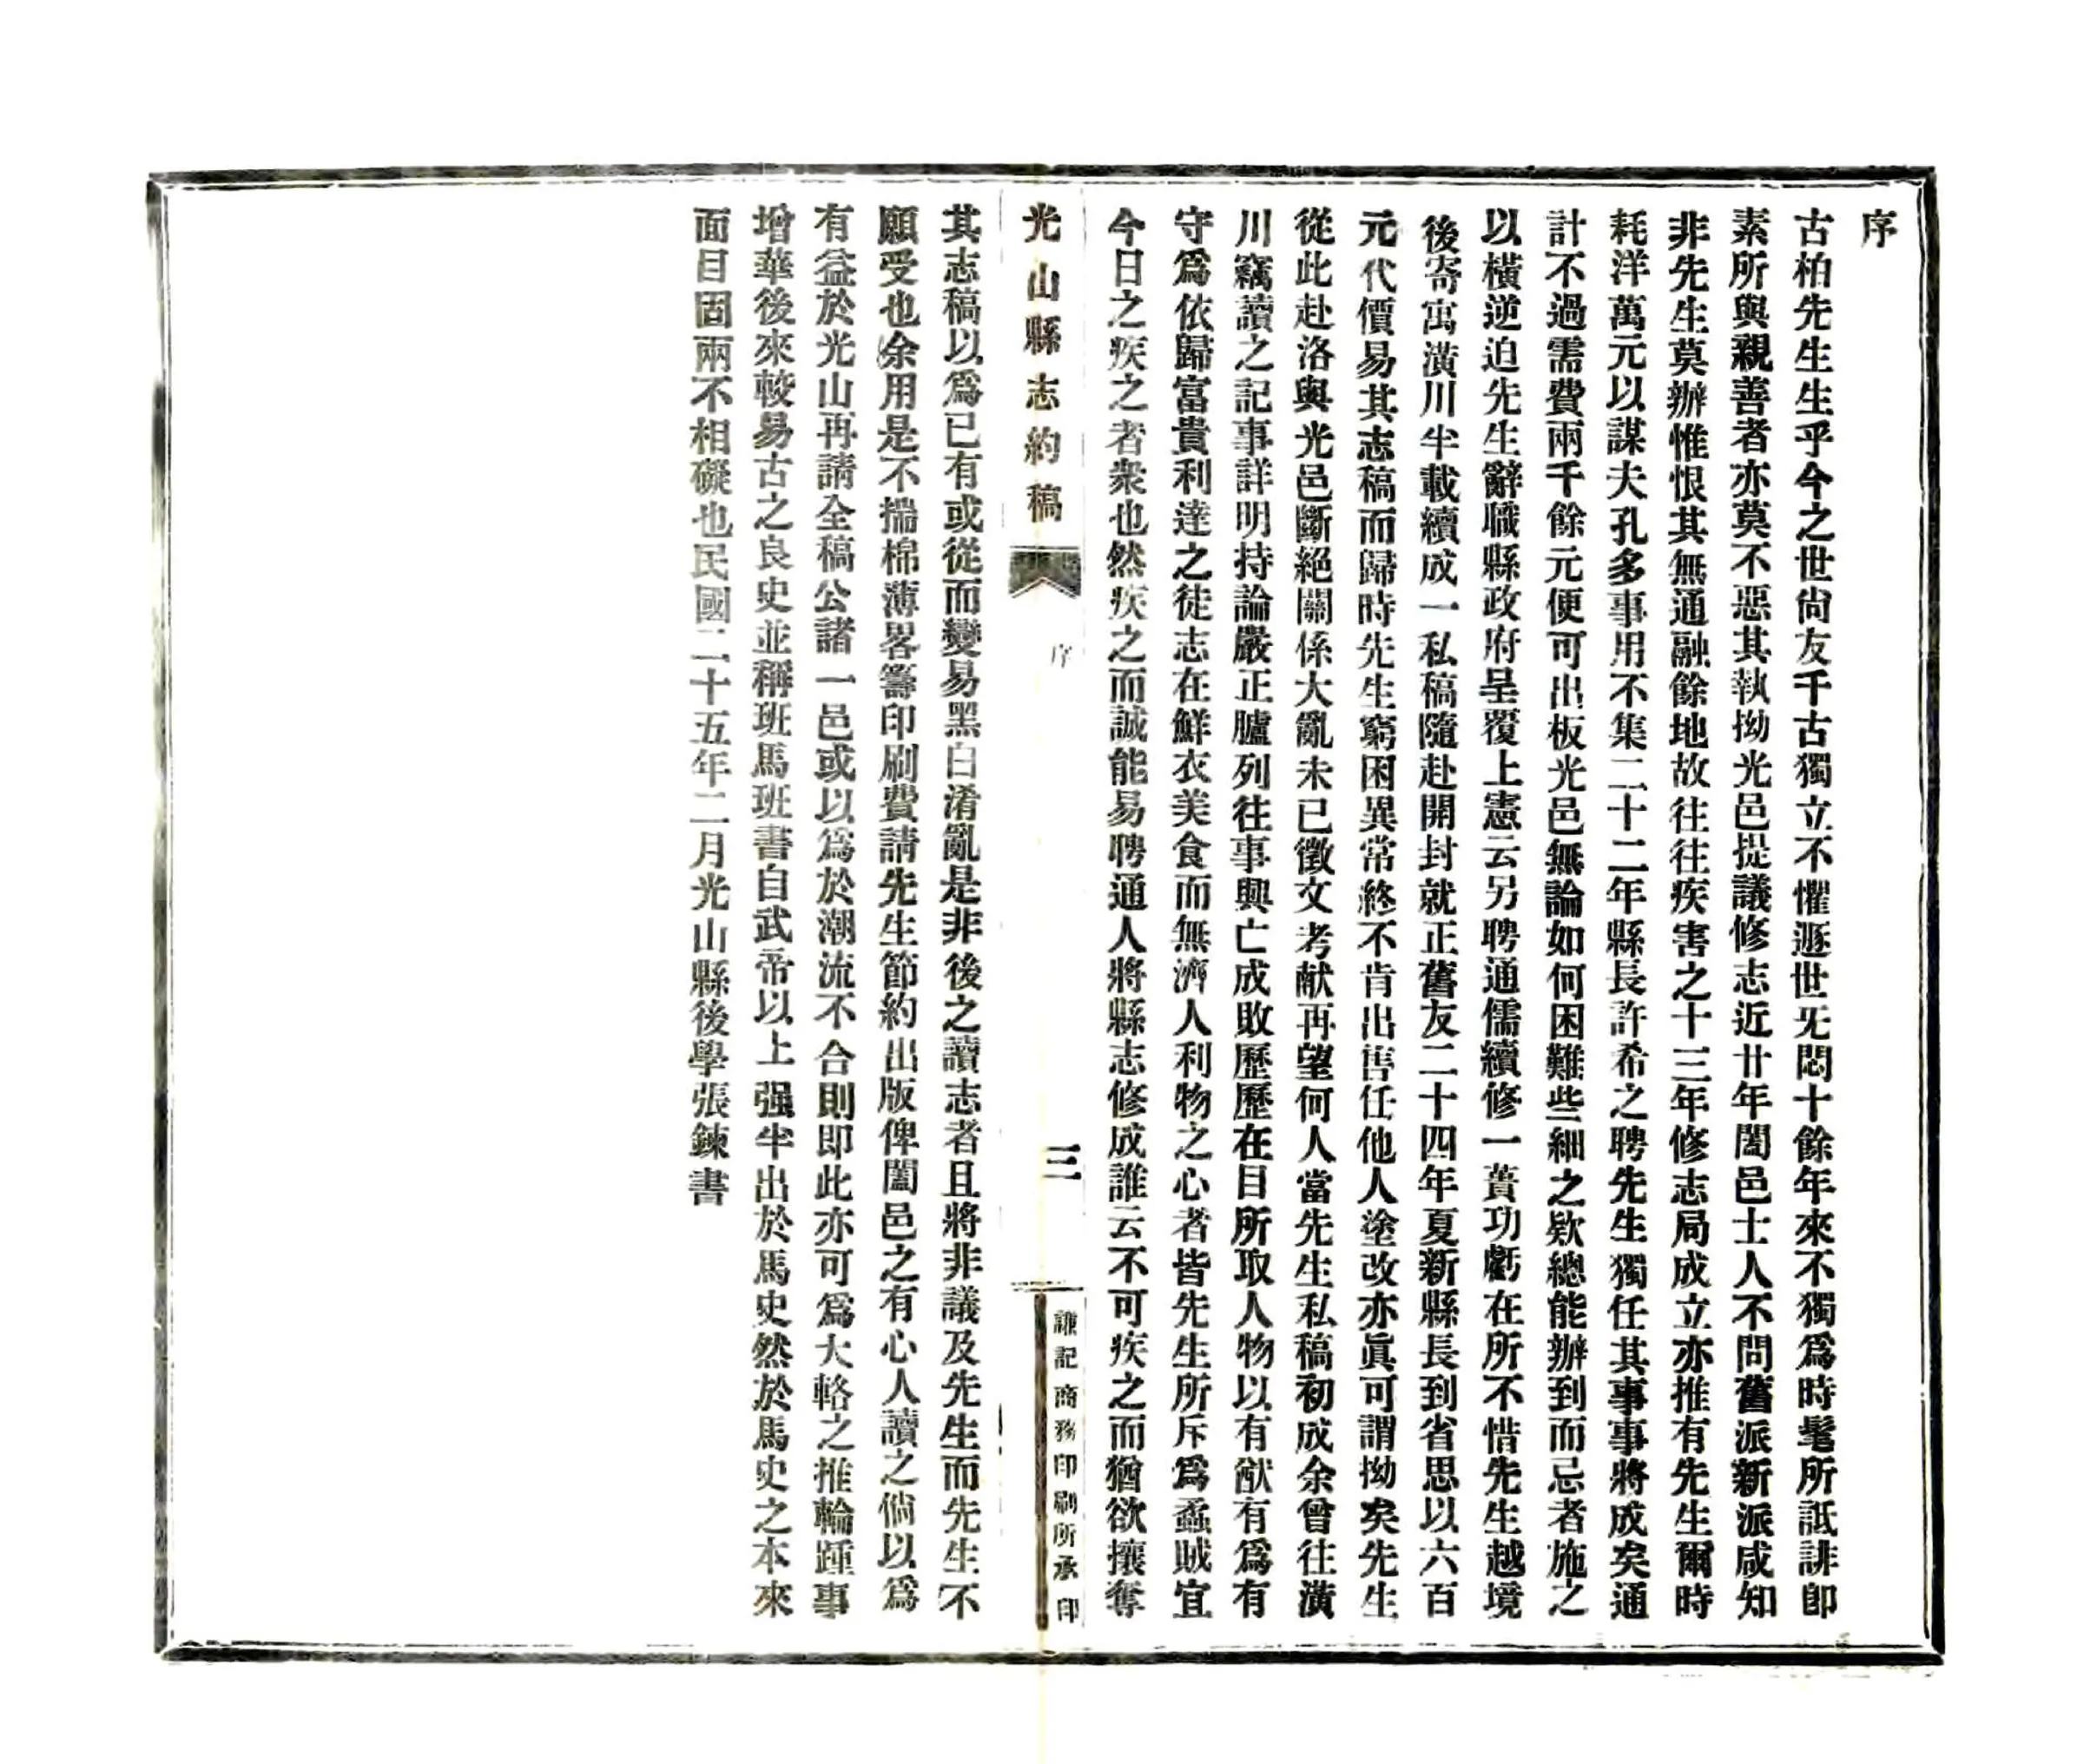 序
古柏先生生乎今之世尙友千古獨立不懼遯世旡悶十餘年來不獨爲時髦所詆誹卽
素所與親善者亦莫不惡其執拗光邑提議修志近廿年闔邑士人不問舊派新派咸知
非先生莫辦惟恨其無通融餘地故往往疾害之十三年修志局成立亦推有先生爾時
耗洋萬元以謀夫孔多事用不集二十二年縣長許希之聘先生獨任其事事將成矣通
計不過需費兩千餘元便可出板光邑無論如何困難些細之欵總能辦到而忌者施之
以橫逆迫先生辭職縣政府呈覆上憲云另聘通儒續修一蕢功虧在所不惜先生越境
後寄寓潢川半載續成一私稿隨赴開封就正舊友二十四年夏新縣長到省思以六百
元代價易其志稿而歸時先生窮困異常終不肯出售任他人塗改亦眞可謂拗矣先生
從此赴洛與光邑斷絕關係大亂未已徵文考献再望何人當先生私稿初成余曾往潢
川竊讀之記事詳明持論嚴正臚列往事興亡成敗歷歷在目所取人物以有猷有爲有
守爲依歸富貴利達之徒志在鮮衣美食而無濟人利物之心者皆先生所斥爲蟊賊宜
今日之疾之者衆也然疾之而誠能易聘通人將縣志修成誰云不可疾之而猶欲攘奪
光山縣志約稿
序
三
謙記商務印刷所承印
其志稿以爲已有或從而變易黑白淆亂是非後之讀志者且將非議及先生而先生不
願受也余用是不揣棉薄畧籌印刷費請先生節約出版俾闔邑之有心人讀之倘以爲
有益於光山再請全稿公諸一邑或以爲於潮流不合則即此亦可爲大輅之推輪踵事
增華後來較易古之良史並稱班馬班書自武帝以上强半出於馬史然於馬史之本來
面目固兩不相礙也民國二十五年二月光山縣後學張鍊書